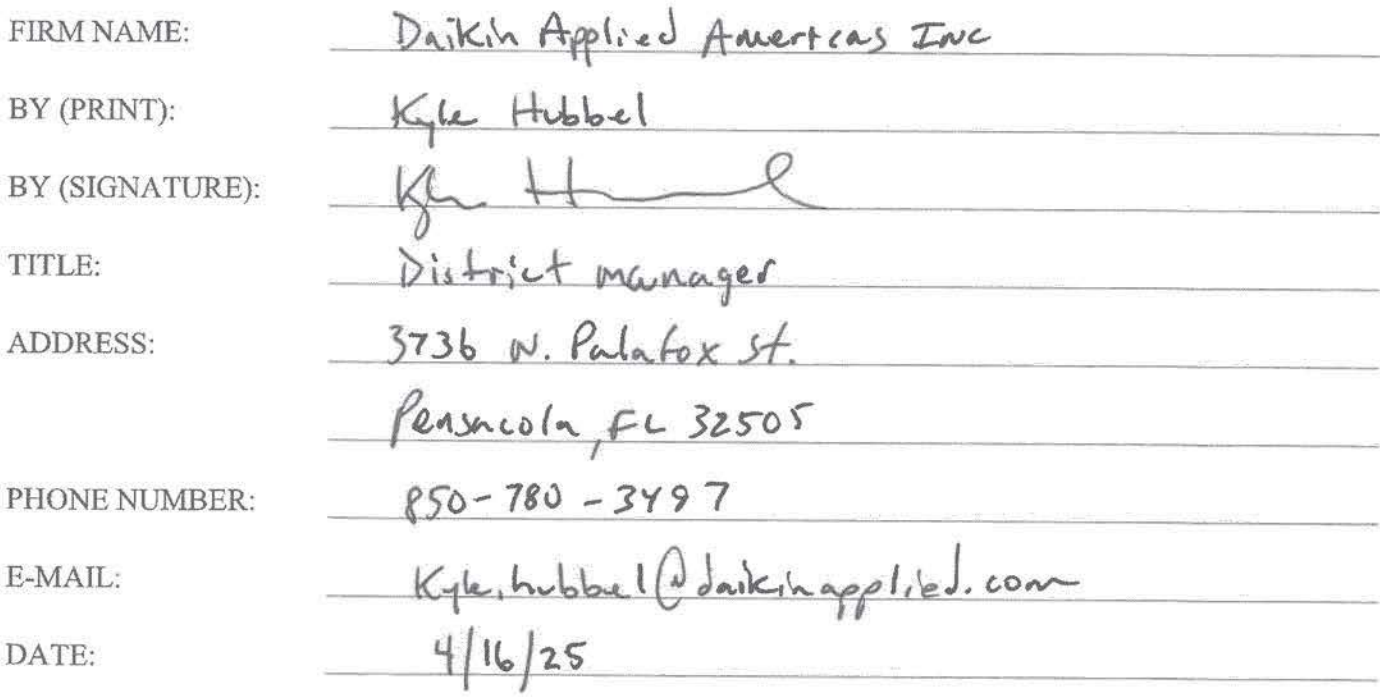 FIRM NAME: Daikin Applied Americas Inc
BY (PRINT): Kyle Hubbel
BY (SIGNATURE): Kyle H
TITLE: District manager
ADDRESS: 3736 N. Palafox St.
Pensacola, FL 32505
PHONE NUMBER: 850-780-3497
E-MAIL: Kyle.hubbel@daikinapplied.com
DATE: 4/16/25